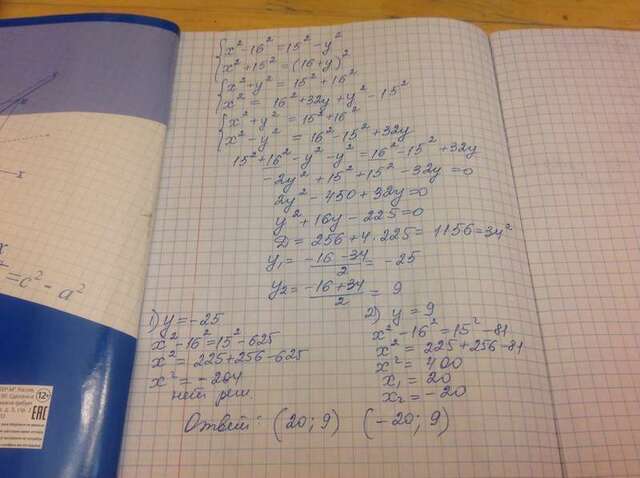 x² - 16² = 15² - y²
x² + 15² = (16+y)²
x² + y² = 15² + 16²
x² = 16² + 32y + y² - 15²
x² + y² = 15² + 16²
x² - y² = 16² - 15² + 32y
15² + 16² - y² - y² = 16² - 15² + 32y
-2y² + 15² + 15² - 32y = 0
2y² - 450 + 32y = 0
y² + 16y - 225 = 0
D = 256 + 4·225 = 1156 = 34²
y₁ = (-16 - 34)/2 = -25
y₂ = (-16 + 34)/2 = 9
1) y = -25
x² - 16² = 15² - 625
x² = 225 + 256 - 625
x² = -204
нет реш.
2) y = 9
x² - 16² = 15² - 81
x² = 225 + 256 - 81
x² = 400
x₁ = 20
x₂ = -20
Ответ: (20; 9) (-20; 9)
x
= c² - a²
12+
EAC